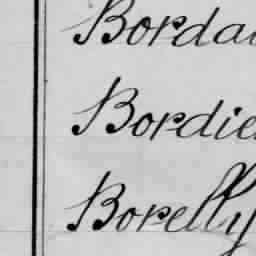 Borda
Bordie
Borelly